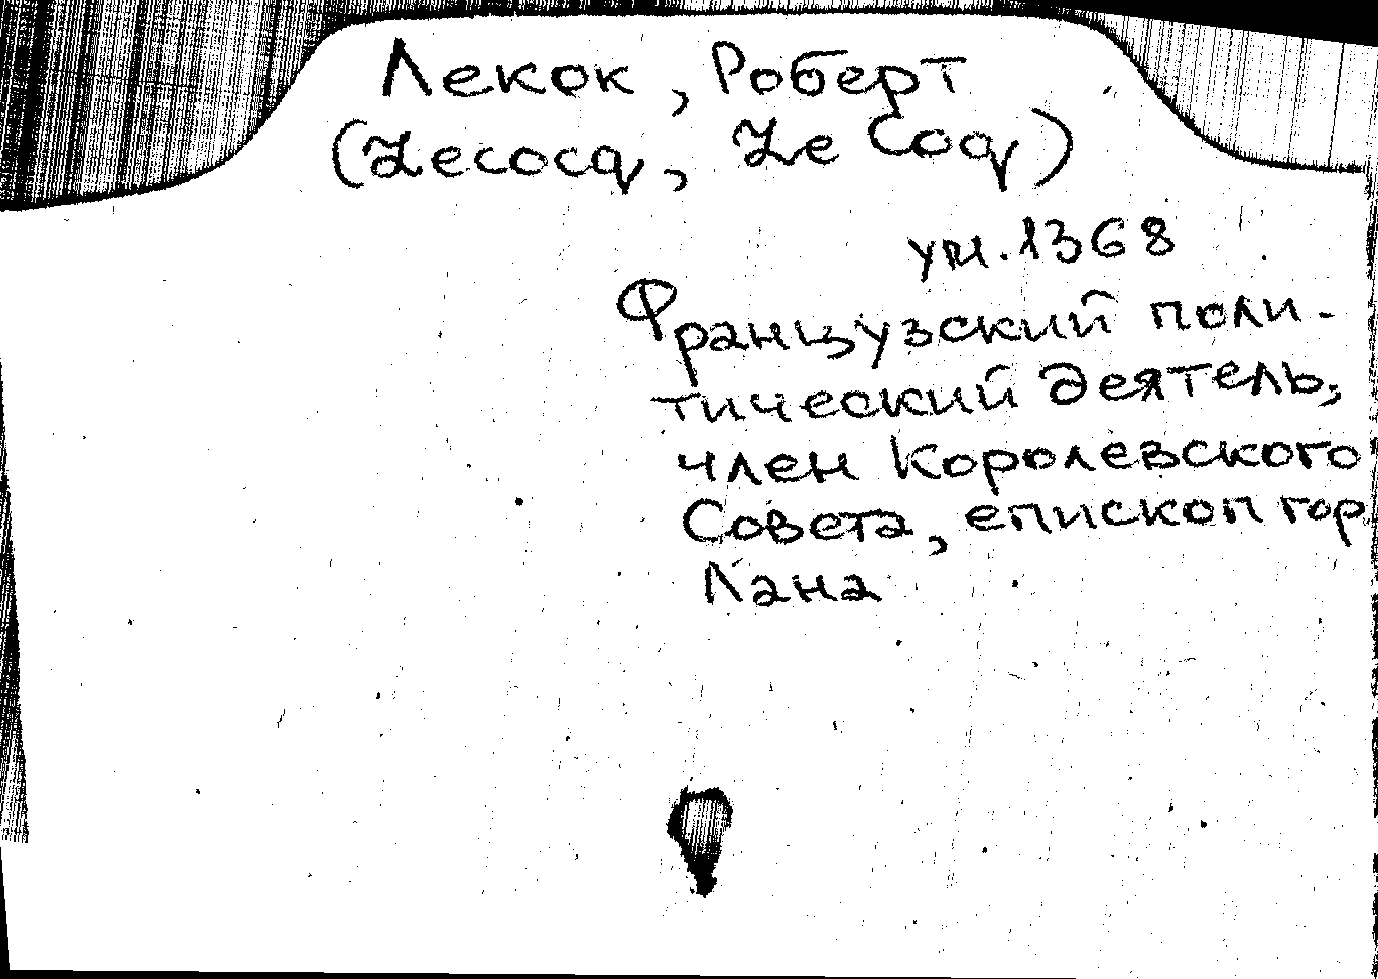 Лекок, Роберт
(Lecocq, Le Coq)
ум. 1368
Французский поли-
тический деятель,
член Королевского
Совета, епископ гор
Лана